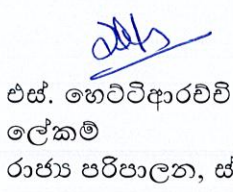 එස්. හෙට්ටිආරච්චි
ලේකම්
රාජ්‍ය පරිපාලන,